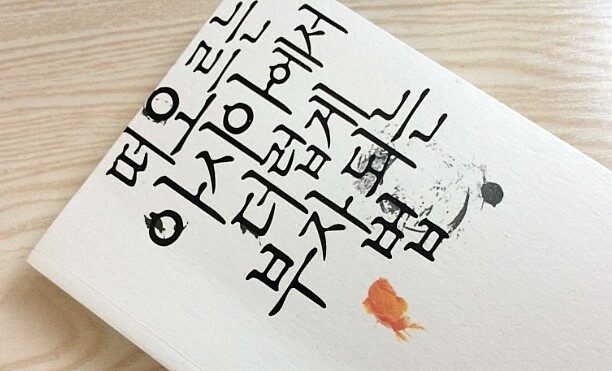 떠오르는
아시아에서
더럽게
부자되는
법